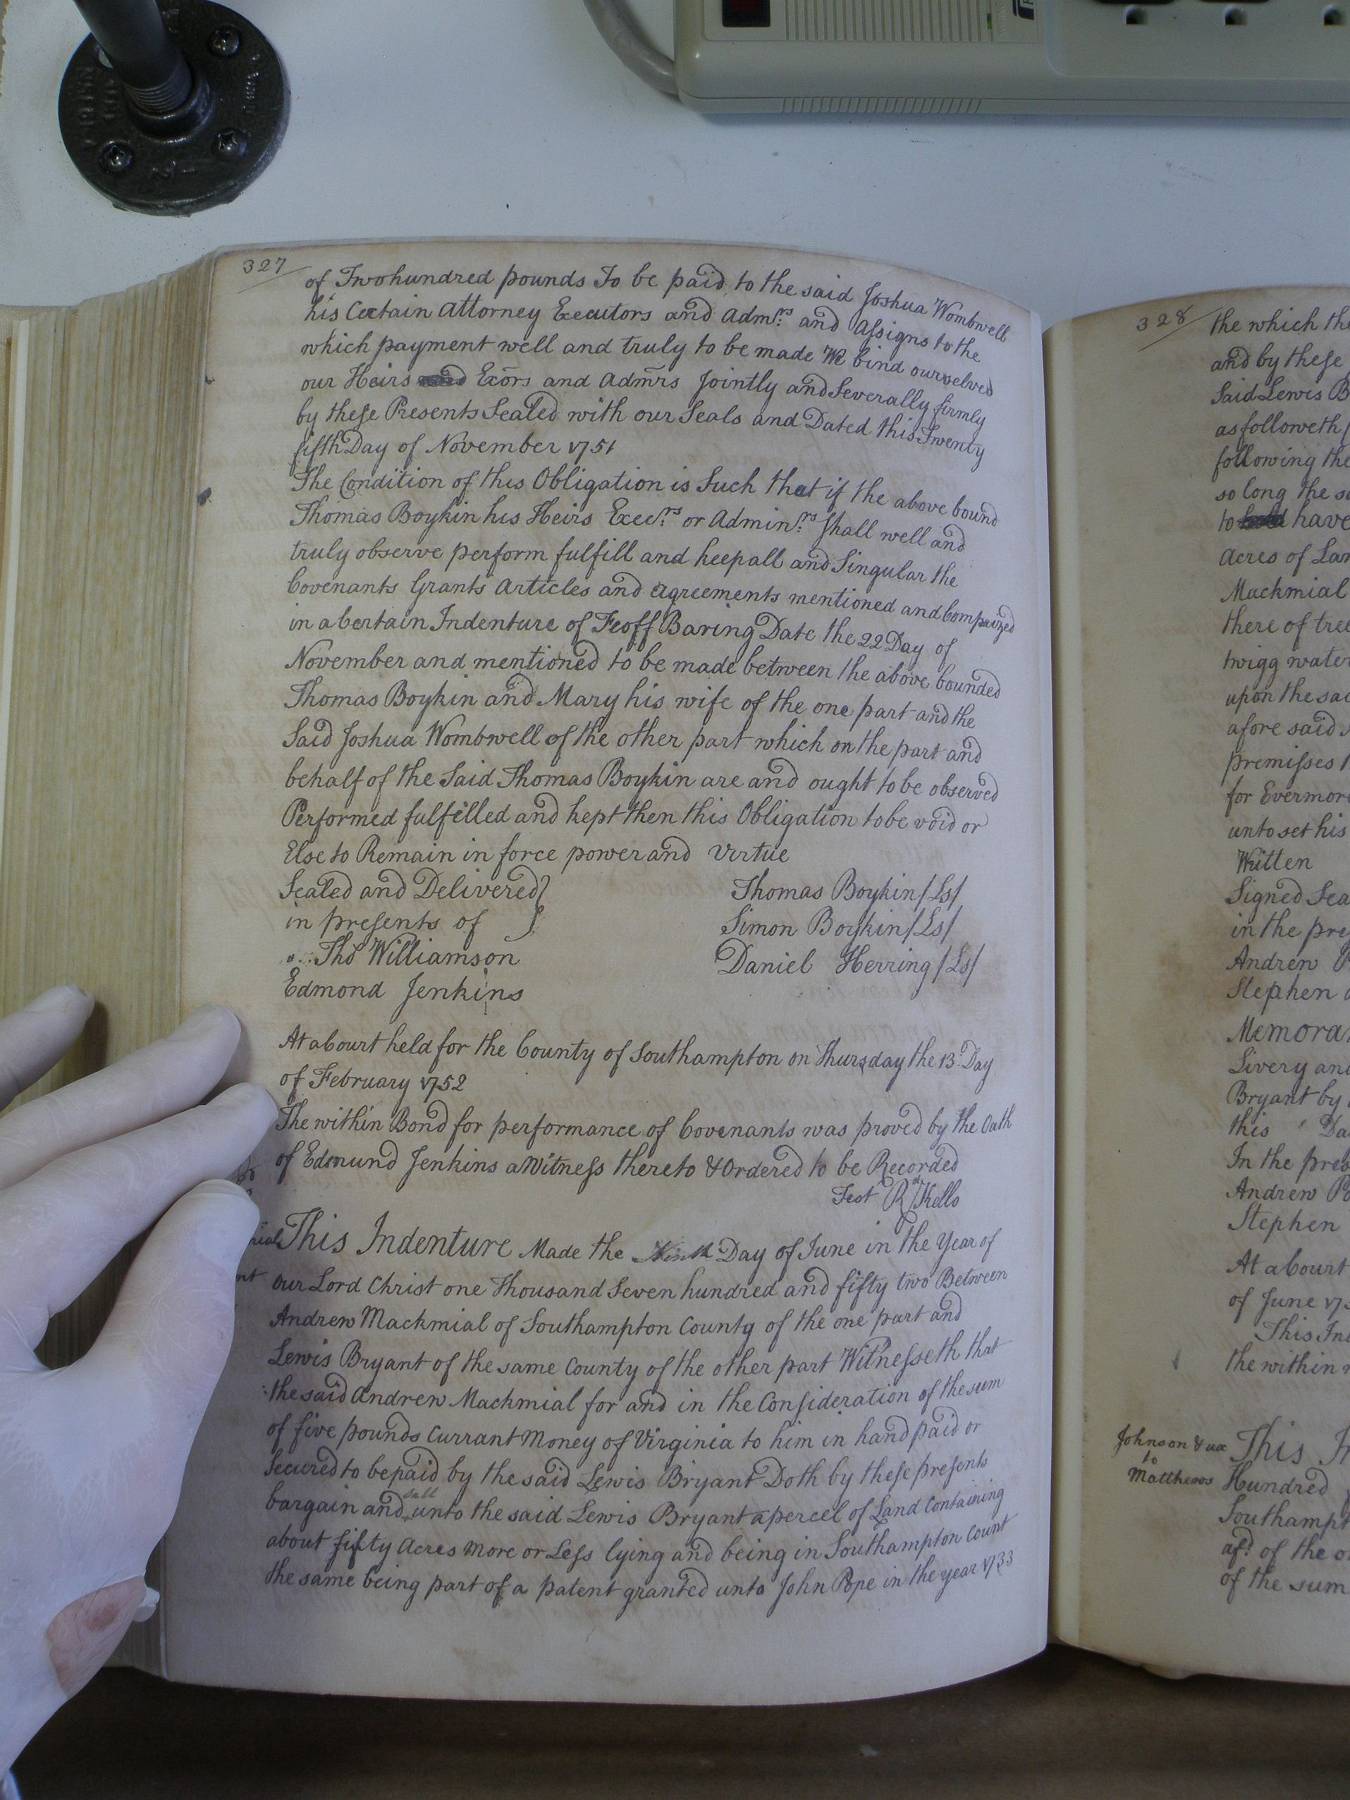 327
of Twohundred pounds To be paid to the said Joshua Wombwell
his Certain Attorney Executors and Adm.rs and Assigns to the
which payment well and truly to be made We bind ourselves
our Heirs Exōrs and Adm̄rs Jointly and Severally firmly
by these Presents Sealed with our Seals and Dated this Twenty
fifth Day of November 1751
The Condition of this Obligation is Such that if the above bound
Thomas Boykin his Heirs Exec.rs or Admin.rs Shall well and
truly observe perform fulfill and keep all and Singular the
Covenants Grants Articles and agreements mentioned and Comprized
in a Certain Indenture of Feoff Baring Date the 22 Day of
November and mentioned to be made between the above bounded
Thomas Boykin and Mary his wife of the one part and the
Said Joshua Wombwell of the other part which on the part and
behalf of the Said Thomas Boykin are and ought to be observed
Performed fulfilled and kept then this Obligation to be void or
Else to Remain in force power and virtue
Sealed and Delivered } Thomas Boykin /Ls/
in presents of } Simon Boykin /Ls/
Tho.s Williamson Daniel Herring /Ls/
Edmond Jenkins
At a Court held for the County of Southampton on Thursday the 13 Day
of February 1752
The within Bond for performance of Covenants was proved by the Oath
of Edmund Jenkins a Witness thereto & Ordered to be Recorded
Test R.d Kello
This Indenture Made the Ninth Day of June in the Year of
our Lord Christ one Thousand Seven hundred and fifty two Between
Andrew Mackmial of Southampton County of the one part and
Lewis Bryant of the same County of the other part Witnesseth that
the said Andrew Mackmial for and in the Consideration of the sum
of five pounds Currant Money of Virginia to him in hand paid or
Secured to be paid by the said Lewis Bryant Doth by these presents
bargain and sell unto the said Lewis Bryant a percel of Land Containing
about fifty Acres more or Less lying and being in Southampton Count
the same being part of a patent granted unto John Pope in the year 1733
328
the which
and by these
Said Lewis B
as followeth
following the
so long the
to have
Acres of Lan
Mackmial
there of tree
twigg water
upon the sai
afore said
premisses
for Evermore
unto set his
Written
Signed Sea
in the pre
Andrew P
Stephen
Memoran
Livery and
Bryant by
this Da
In the pres
Andrew Po
Stephen
At a Court
of June 175
This Ind
the within
Johnson & ux
to
Matthews
This In
Hundred
Southampt
afs.d of the o
of the sum